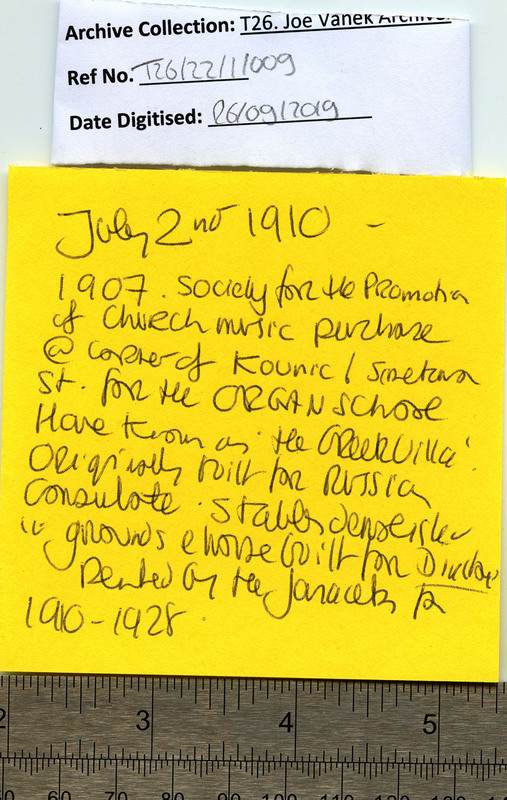 Archive Collection: T26. Joe Vanek Archive.
Ref No. T26/22/1/009
Date Digitised: 26/09/2019
July 2nd 1910 -
1907. Society for the Promotion
of Church music purchase
@ corner of Kounic / Smetana
St. for the ORGAN SCHOOL
House known as 'the GREEK Villa'.
Originally built for RUSSIAN
Consulate. Stables demolished
in grounds & house built for Director
Rented by the Janaceks for
1910-1928.
2 3 4 5
50 60 70 80 90 100 110 120 130